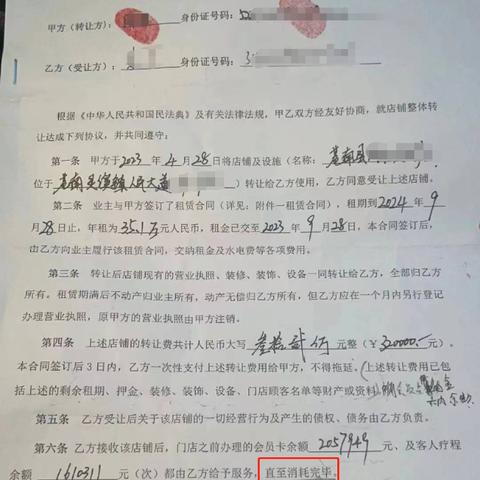 甲方（转让方）： 身份证号码：52
乙方（受让方）： 身份证号码：3
根据《中华人民共和国民法典》及有关法律法规，甲乙双方经友好协商，就店铺整体转
让达成下列协议，并共同遵守：
第一条 甲方于2023年4月28日将店铺及设施（名称：
位于 人民大道 ）转让给乙方使用，乙方同意受让上述店铺。
第二条 业主与甲方签订了租赁合同（详见：附件一租赁合同），租期到2024年9
月28日止，年租为35.1万元人民币，租金已交至2023年9月28日，本合同签订后，
由乙方向业主履行该租赁合同，交纳租金及水电费等各项费用。
第三条 转让后店铺现有的营业执照、装修、装饰、设备一同转让给乙方，全部归乙方
所有。租赁期满后不动产归业主所有，动产无偿归乙方所有，但乙方应在一个月内另行登记
办理营业执照，原甲方的营业执照由甲方注销。
第四条 上述店铺的转让费共计人民币大写 叁拾贰万 元整（￥320000.-元），
本合同签订后3日内，乙方一次性支付上述转让费用给甲方，不得拖延。（上述转让费用已包
括上述的剩余租期、押金、装修、装饰、设备、门店顾客名单等财产或资料
第五条 乙方受让后关于该店铺的一切经营行为及产生的债权、债务由乙方负责。
第六条 乙方接收该店铺后，门店之前办理的会员卡余额 2057949 元，及客人疗程
余额 1610311 元（次）都由乙方给予服务，直至消耗完毕。